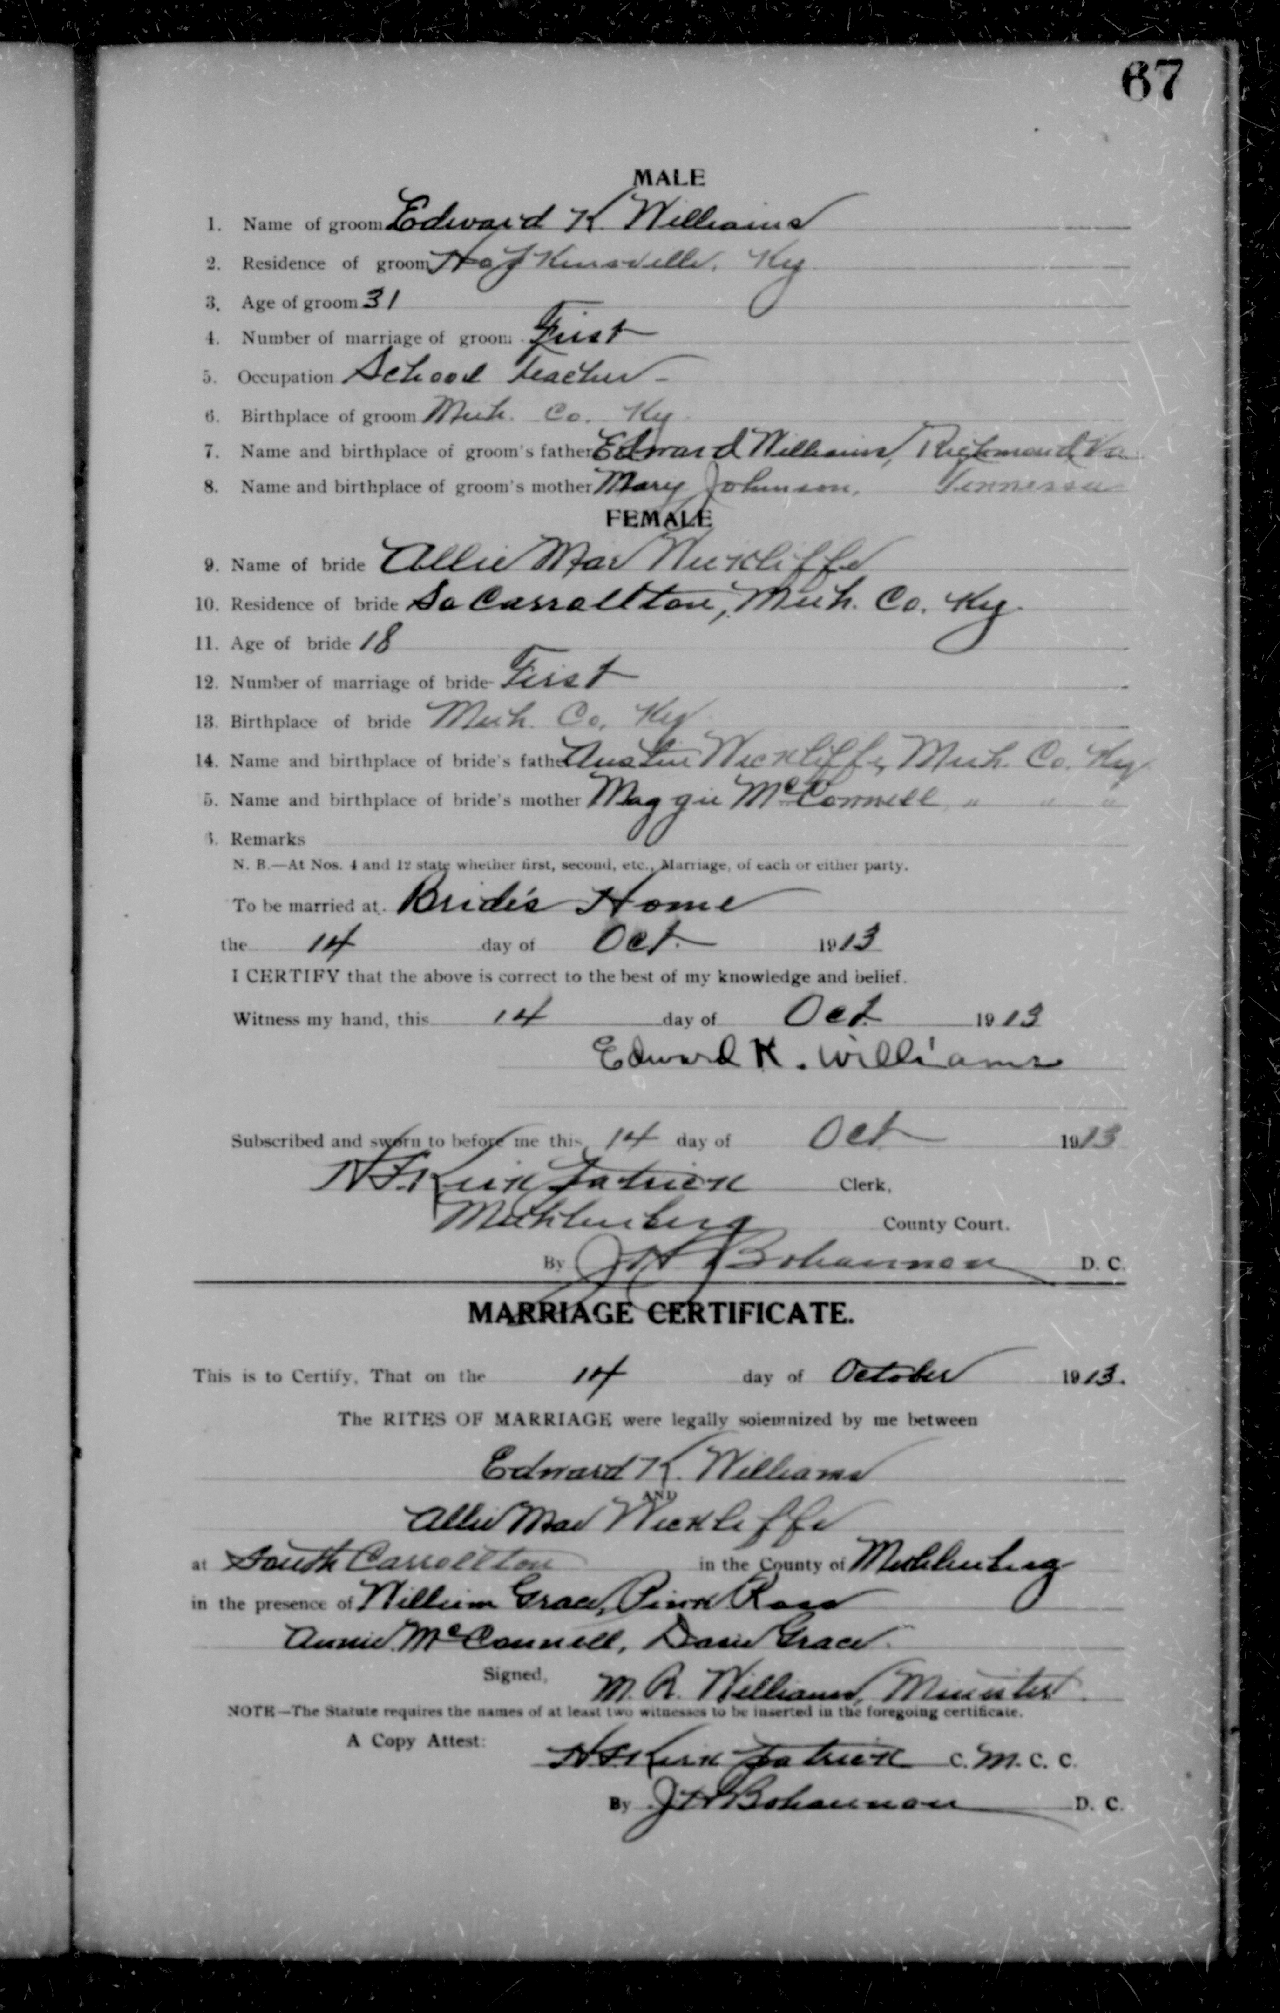 67
MALE
1. Name of groom Edward K. Williams
2. Residence of groom Hopkinsville, Ky.
3. Age of groom 31
4. Number of marriage of groom First
5. Occupation School Teacher
6. Birthplace of groom Muh. Co. Ky.
7. Name and birthplace of groom's father Edward Williams, Richmond Va
8. Name and birthplace of groom's mother Mary Johnson, Tennessee
FEMALE
9. Name of bride Allie Mae Wickliffe
10. Residence of bride So Carrollton, Muh. Co. Ky.
11. Age of bride 18
12. Number of marriage of bride First
13. Birthplace of bride Muh. Co. Ky
14. Name and birthplace of bride's father Austin Wickliffe, Muh. Co. Ky
5. Name and birthplace of bride's mother Maggie McConnell, " " "
Remarks
N. B.—At Nos. 4 and 12 state whether first, second, etc., Marriage, of each or either party.
To be married at Bride's Home
the 14 day of Oct. 1913
I CERTIFY that the above is correct to the best of my knowledge and belief.
Witness my hand, this 14 day of Oct. 1913
Edward K. Williams
Subscribed and sworn to before me this 14 day of Oct 1913
Kirkpatrick Clerk,
Muhlenberg County Court.
By J H Bohannon D. C.
MARRIAGE CERTIFICATE.
This is to Certify, That on the 14 day of October 1913.
The RITES OF MARRIAGE were legally solemnized by me between
Edward K. Williams
AND
Allie Mae Wickliffe
at South Carrollton in the County of Muhlenberg
in the presence of William Grace, Pink Ross
Annie McConnell, Dasie Grace.
Signed, M. R. Williams, Minister.
NOTE—The Statute requires the names of at least two witnesses to be inserted in the foregoing certificate.
A Copy Attest: Kirkpatrick C. M. C. C.
By J H Bohannon D. C.